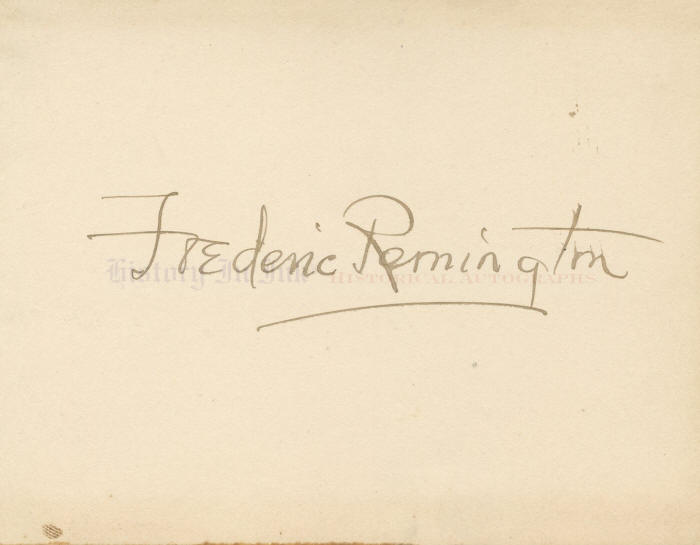 Frederic Remington
History In Ink HISTORICAL AUTOGRAPHS